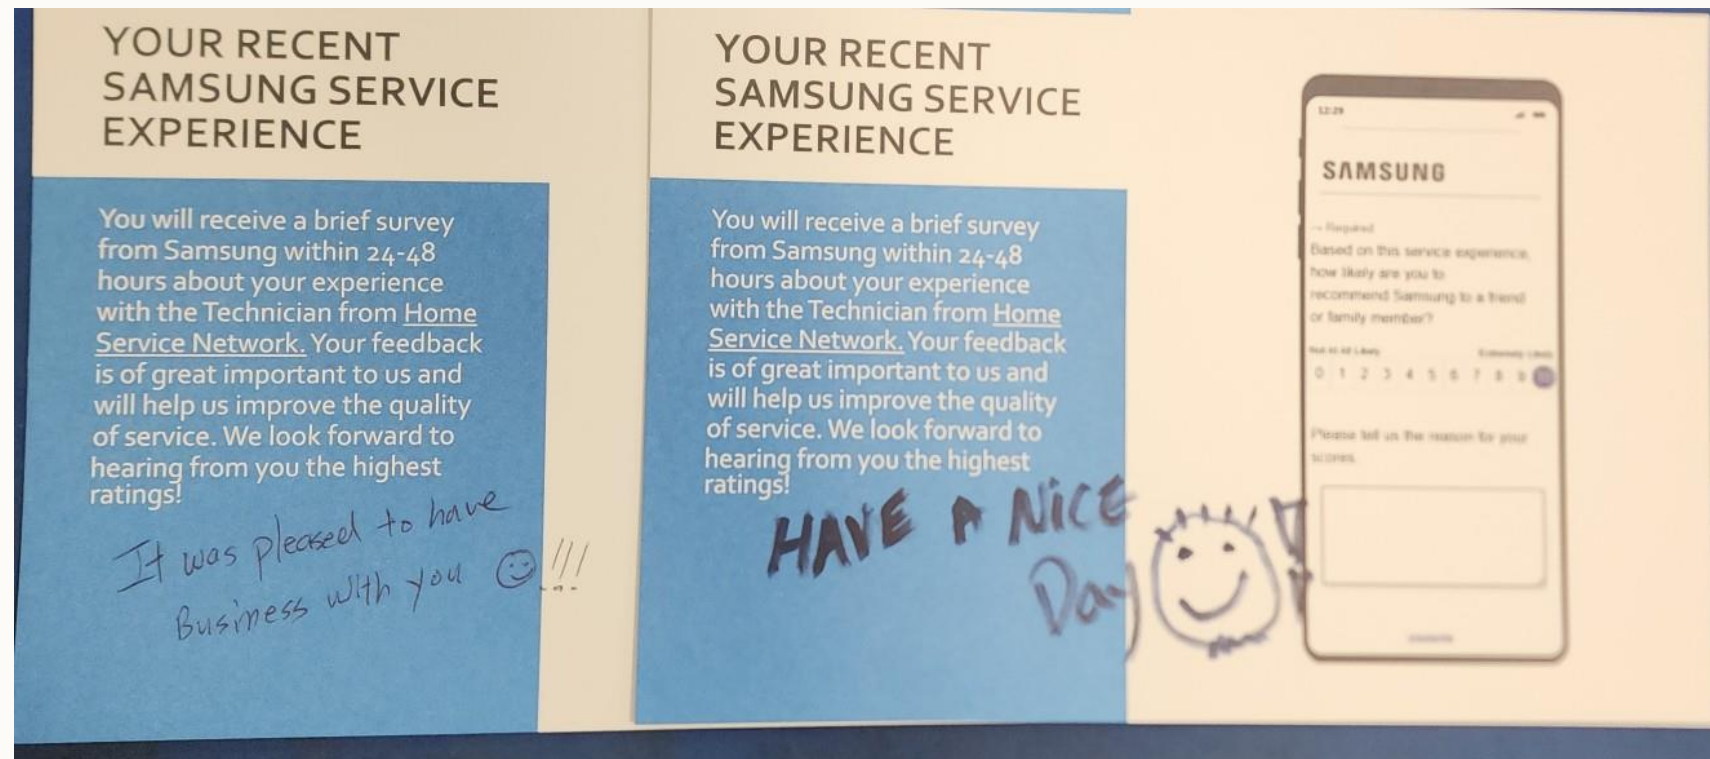 YOUR RECENT
SAMSUNG SERVICE
EXPERIENCE
You will receive a brief survey
from Samsung within 24-48
hours about your experience
with the Technician from Home
Service Network. Your feedback
is of great important to us and
will help us improve the quality
of service. We look forward to
hearing from you the highest
ratings!
It was pleased to have
Business with you !!!
YOUR RECENT
SAMSUNG SERVICE
EXPERIENCE
You will receive a brief survey
from Samsung within 24-48
hours about your experience
with the Technician from Home
Service Network. Your feedback
is of great important to us and
will help us improve the quality
of service. We look forward to
hearing from you the highest
ratings!
HAVE A NICE
Day !
12:29
SAMSUNG
Required
Based on this service experience,
how likely are you to
recommend Samsung to a friend
or family member?
Not At All Likely Extremely Likely
0 1 2 3 4 5 6 7 8 9
Please tell us the reason for your
scores.